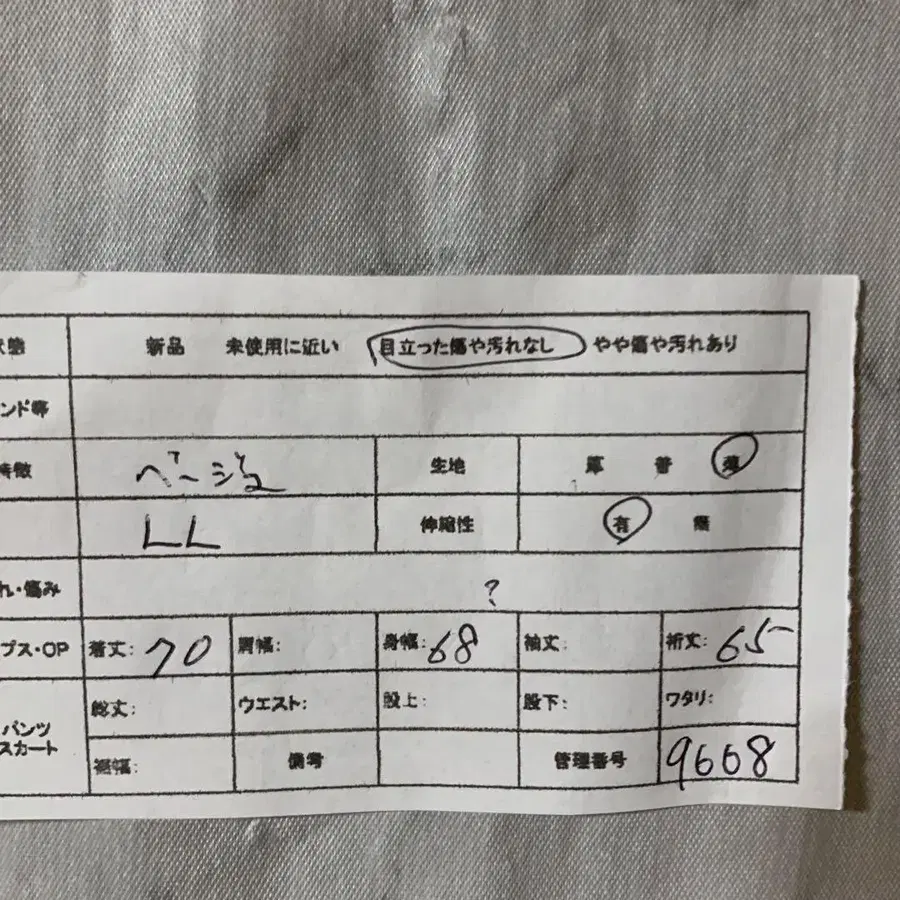 状態 新品 未使用に近い 目立った傷や汚れなし やや傷や汚れあり
ンド等
特徴 ベージュ 生地 厚 普 薄
LL 伸縮性 有 無
れ・傷み ?
プス・OP 着丈: 70 肩幅: 身幅: 68 袖丈: 裄丈: 65
パンツ
スカート
総丈: ウエスト: 股上: 股下: ワタリ:
裾幅: 備考 管理番号 9668